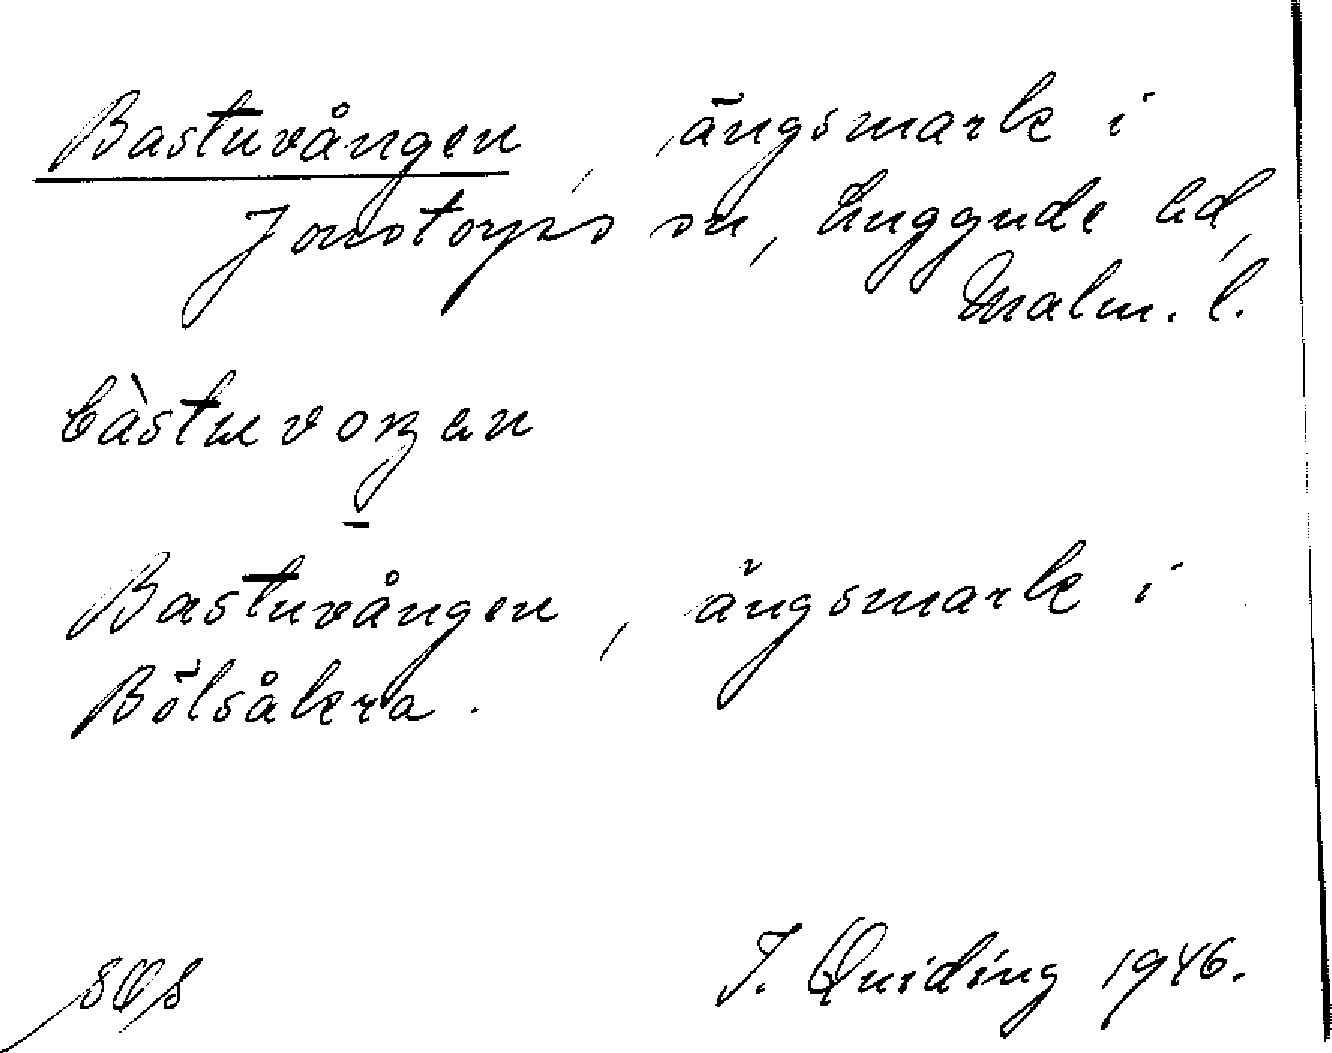 Bastuvången, ängsmark i
Jonstorps sn, Luggude hd,
Malm. l.
bàstuvoŋan
Bastuvången, ängsmark i
Bölsåkra.
SOS J. Quiding 1946.